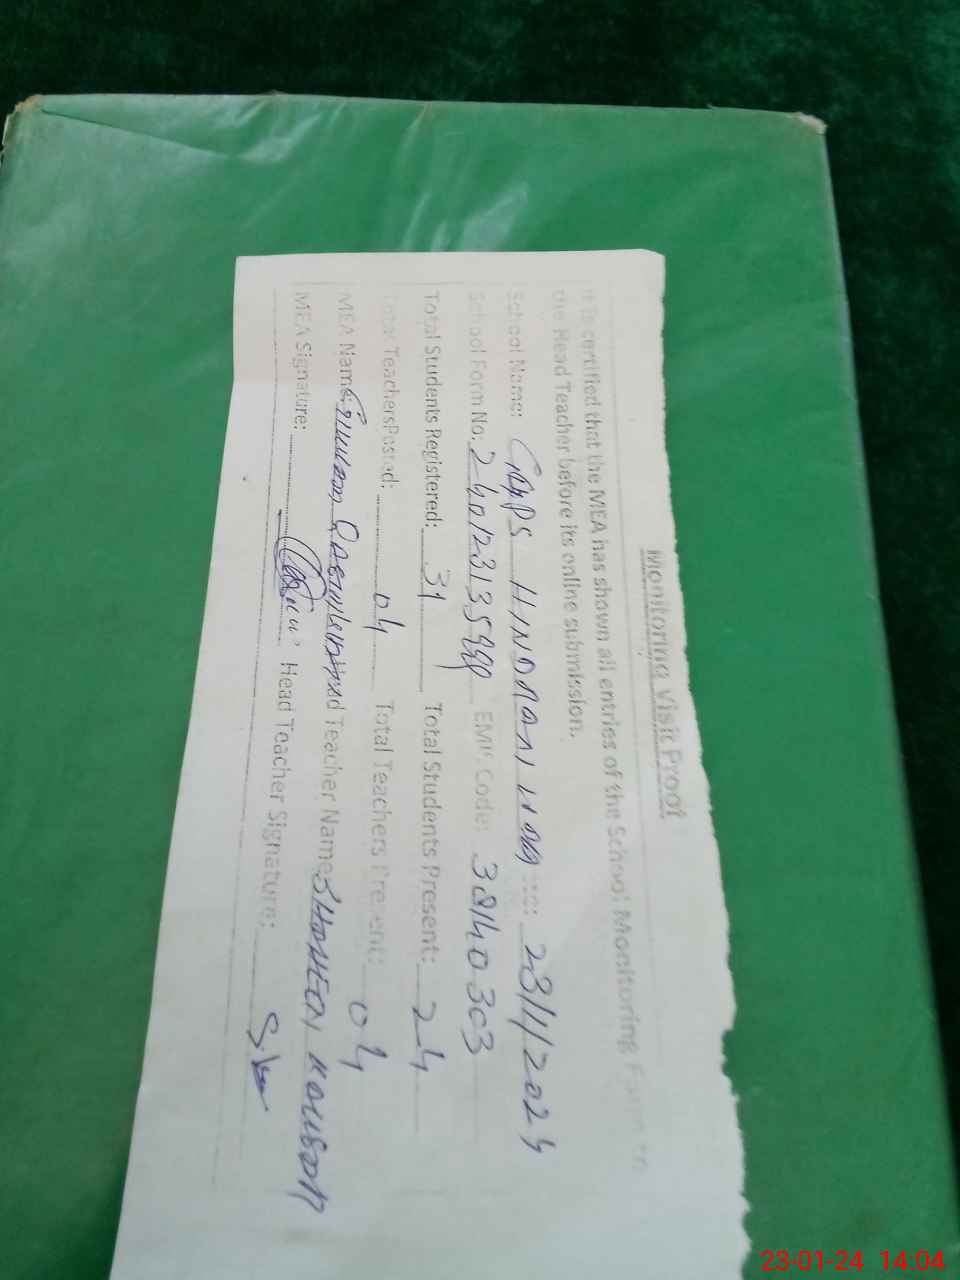 Monitoring Visit Proof
It is certified that the MEA has shown all entries of the School Monitoring Form to
the Head Teacher before its online submission.
School Name: GGPS HINDRANI Date: 23/1/2024
School Form No: EMIS Code: 38140303
Total Students Registered: 31 Total Students Present: 24
Total Teachers Posted: 04 Total Teachers Present: 04
MEA Name: Head Teacher Name: KOUSAR
MEA Signature: Head Teacher Signature:
23-01-24 14:04